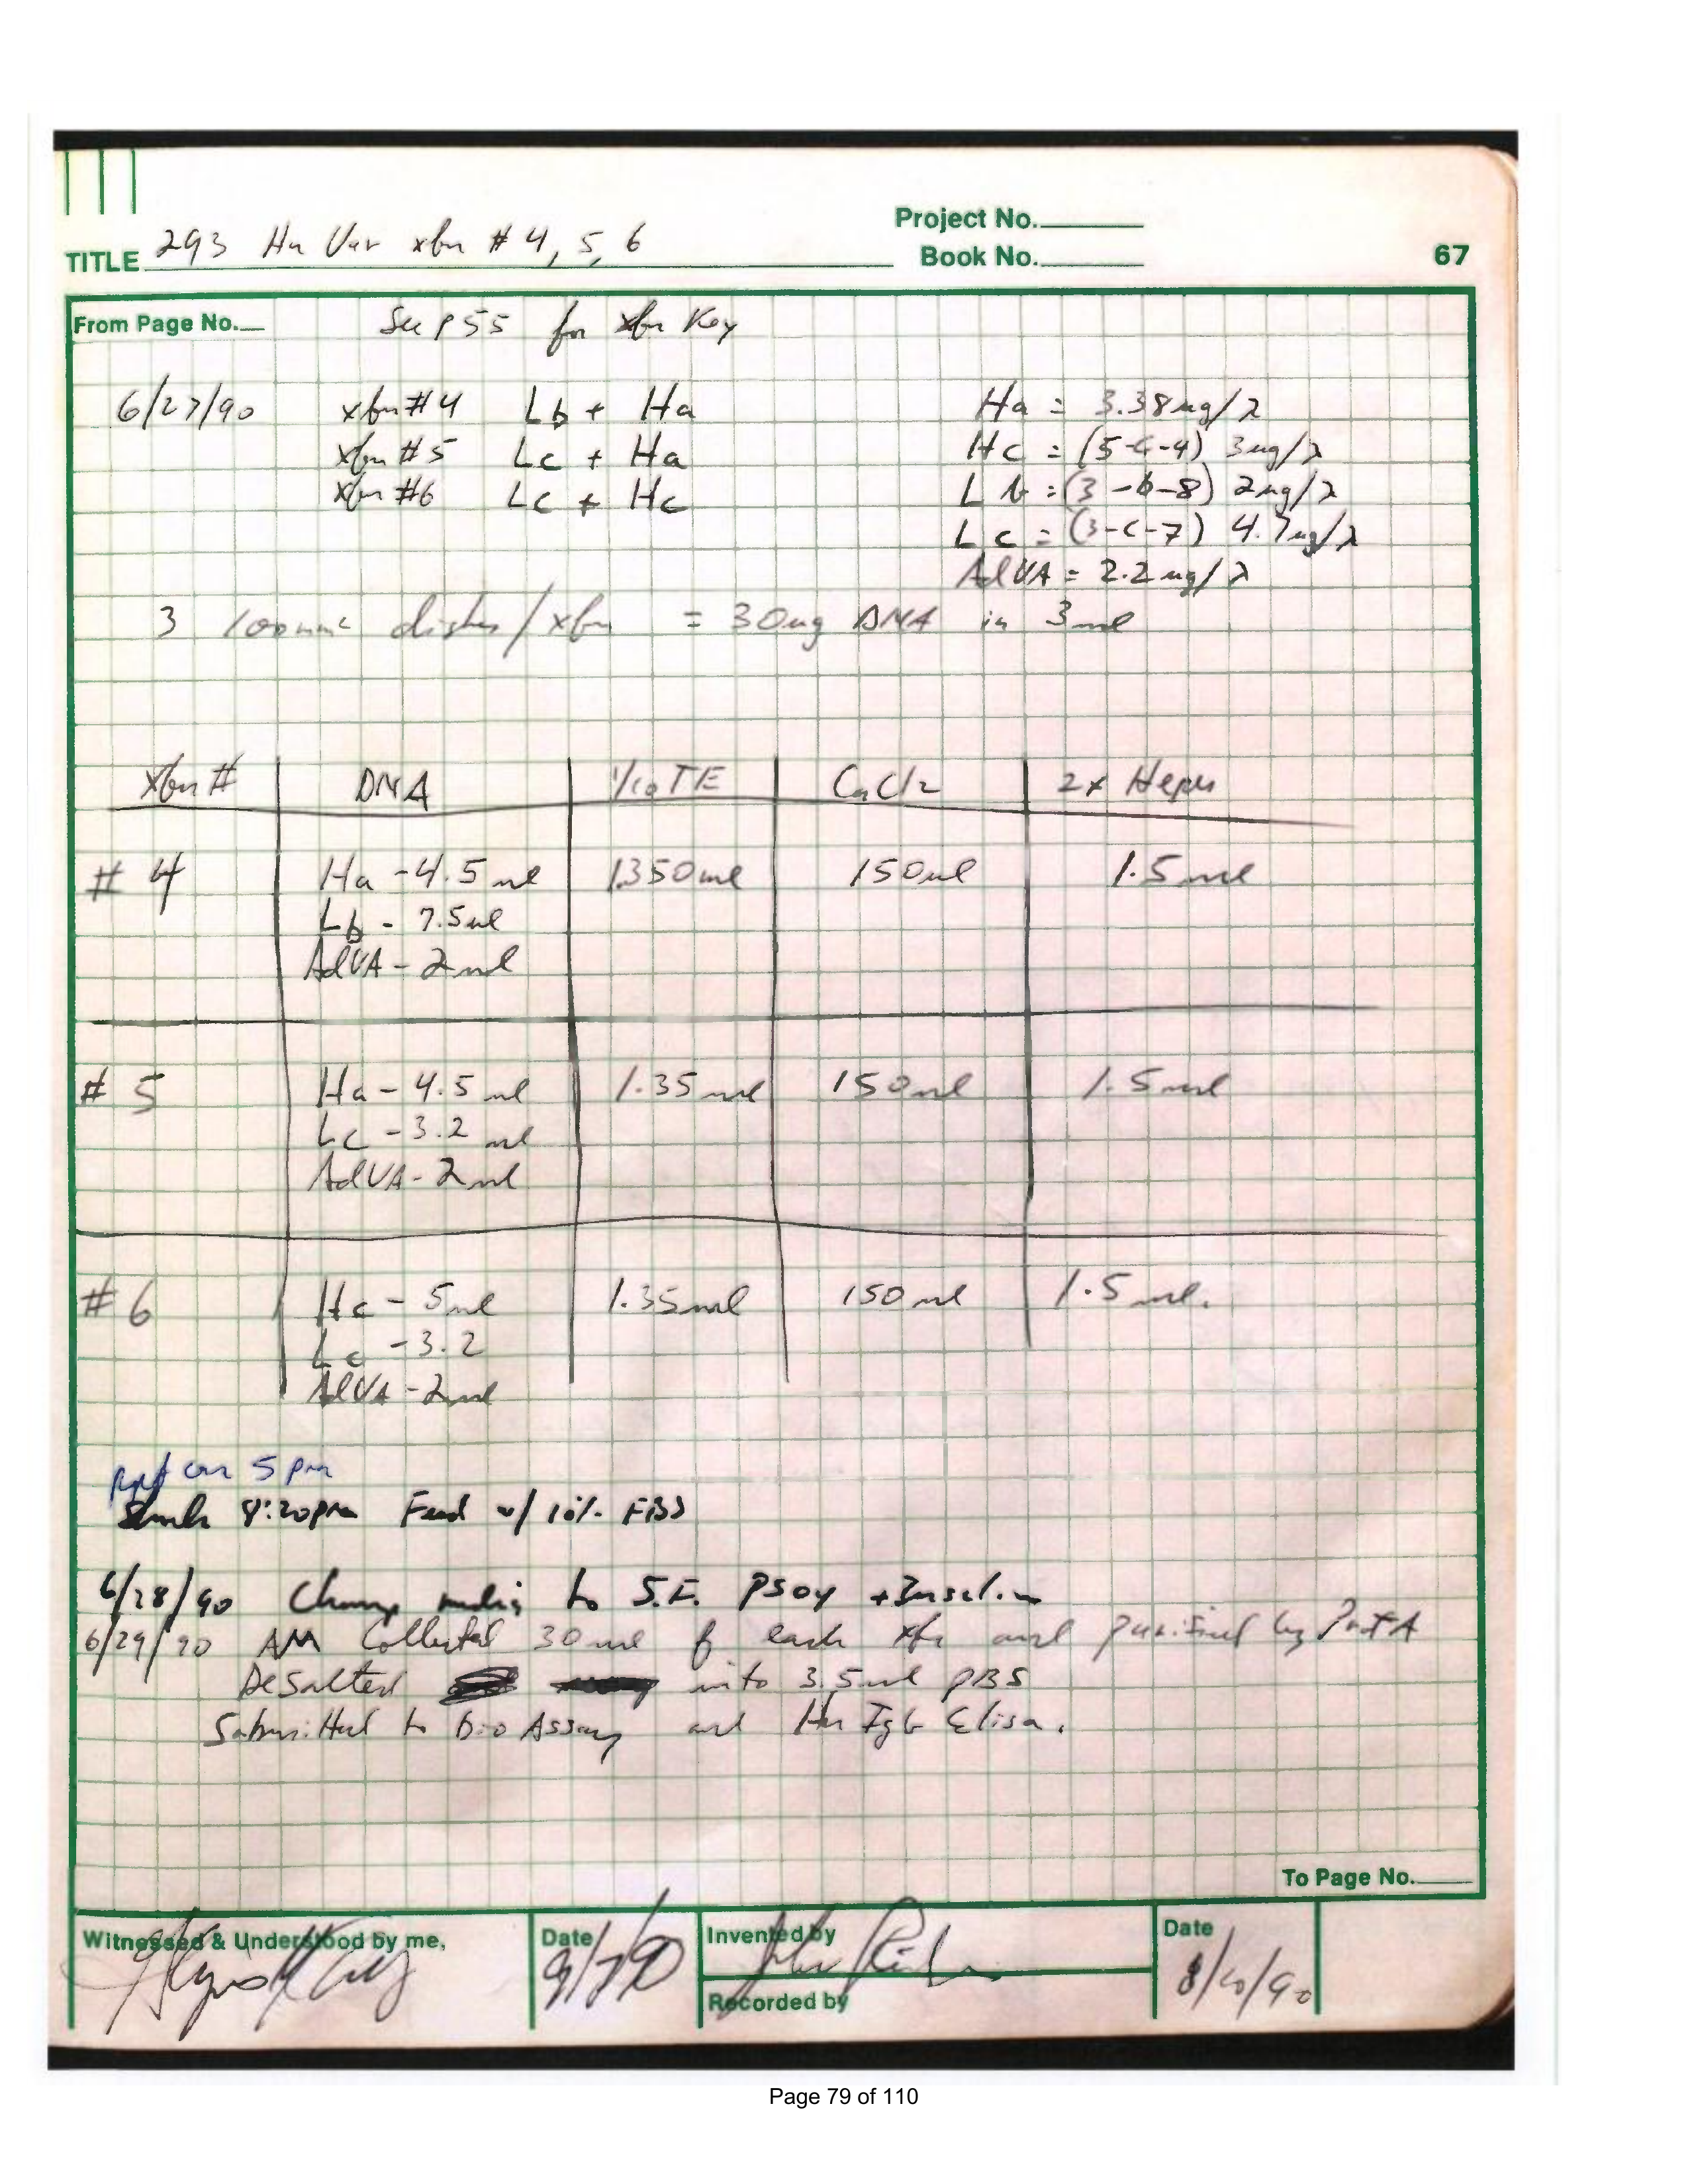 Project No.
TITLE 293 Hu Var xfn # 4, 5, 6
Book No.
67
From Page No.
See p 55 for xfn Key
6/27/90 xfn #4 Lb + Ha
xfn #5 Lc + Ha
xfn #6 Lc + Hc
Ha = 3.38ug/λ
Hc = (5-c-4) 3ug/λ
Lb = (3-b-8) 2ug/λ
Lc = (3-c-7) 4.7ug/λ
AdVA = 2.2ug/λ
3 100mm dishes/xfn = 30ug DNA in 3ml
Xfn # DNA 1/10 TE CaCl2 2x Hepes
# 4 Ha - 4.5 ul 1350ul 150ul 1.5 ml
Lb - 7.5ul
AdVA - 2ul
# 5 Ha - 4.5 ul 1.35 ml 150ul 1.5ml
Lc - 3.2 ul
AdVA - 2ul
# 6 Hc - 5ul 1.35ml 150 ul 1.5 ml.
Lc - 3.2
AdVA - 2ul
ppt on 5 pm
8:20pm Feed w/ 10% FBS
6/28/90 Change media to S.F. PSO4 + Insulin
6/29/90 AM Collected 30 ml of each xfn and purified by Prot A
Desalted into 3.5ml PBS
Submitted to bio Assay and Hu IgG Elisa.
To Page No.
Witnessed & Understood by me,
Date
9/7/90
Invented by
Recorded by
Date
8/10/90
Page 79 of 110